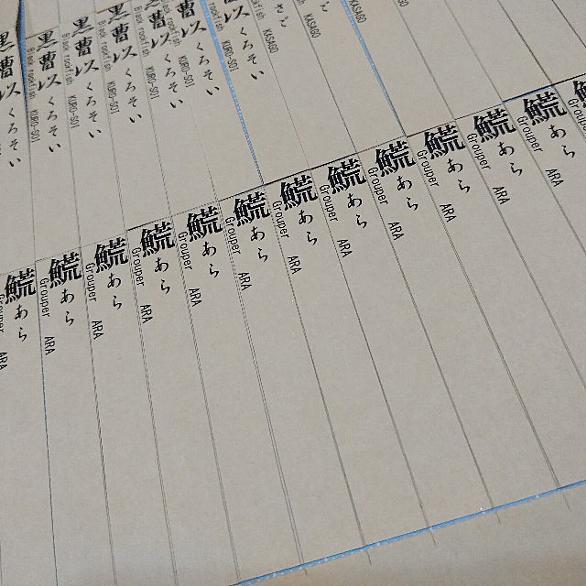 黒曹以 くろそい
Black rockfish KURO-SOI
黒曹以 くろそい
Black rockfish KURO-SOI
黒曹以 くろそい
Black rockfish KURO-SOI
黒曹以 くろそい
Black rockfish KURO-SOI
曹以 くろそい
rockfish KURO-SOI
以 くろそい
KURO-SOI
以 くろそい
KURO-SOI
さご
KASAGO
ご
KASAGO
KASAGO
𩺊 あら
Grouper ARA
𩺊 あら
Grouper ARA
𩺊 あら
Grouper ARA
𩺊 あら
Grouper ARA
𩺊 あら
Grouper ARA
𩺊 あら
Grouper ARA
𩺊 あら
Grouper ARA
𩺊 あら
Grouper ARA
𩺊 あら
Grouper ARA
𩺊 あら
Grouper ARA
𩺊 あら
Grouper ARA
𩺊 あら
Grouper ARA